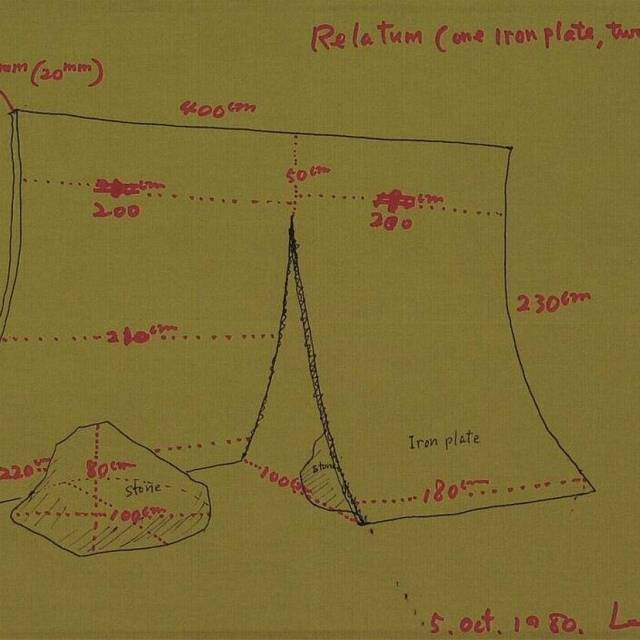 Relatum (one Iron plate, two
mm (20mm)
400cm
50cm
cm
200
cm
200
230cm
210cm
Iron plate
220
80cm
stone
100cm
100cm
stone
180cm
5. oct. 1980. L